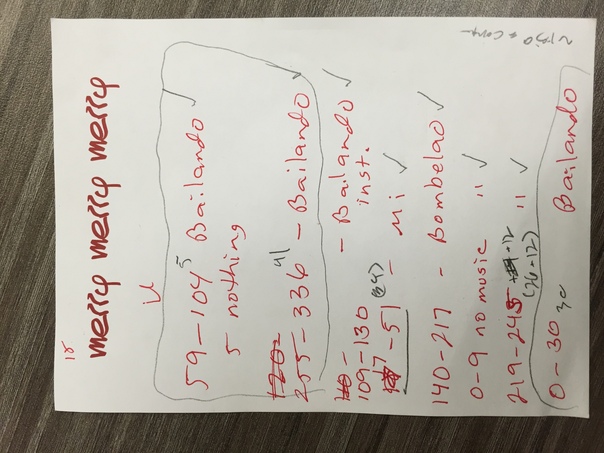 merry merry merry
59-104 5 Bailando ✓
5 nothing
255-336 41 - Bailando ✓
109-130 - Bailando ✓
inst.
17-51 - Mi ✓
140-217 - Bombelao ✓
0-9 no music " ✓
219-245 - 12 " ✓
(26-12)
0-30 30 Bailando